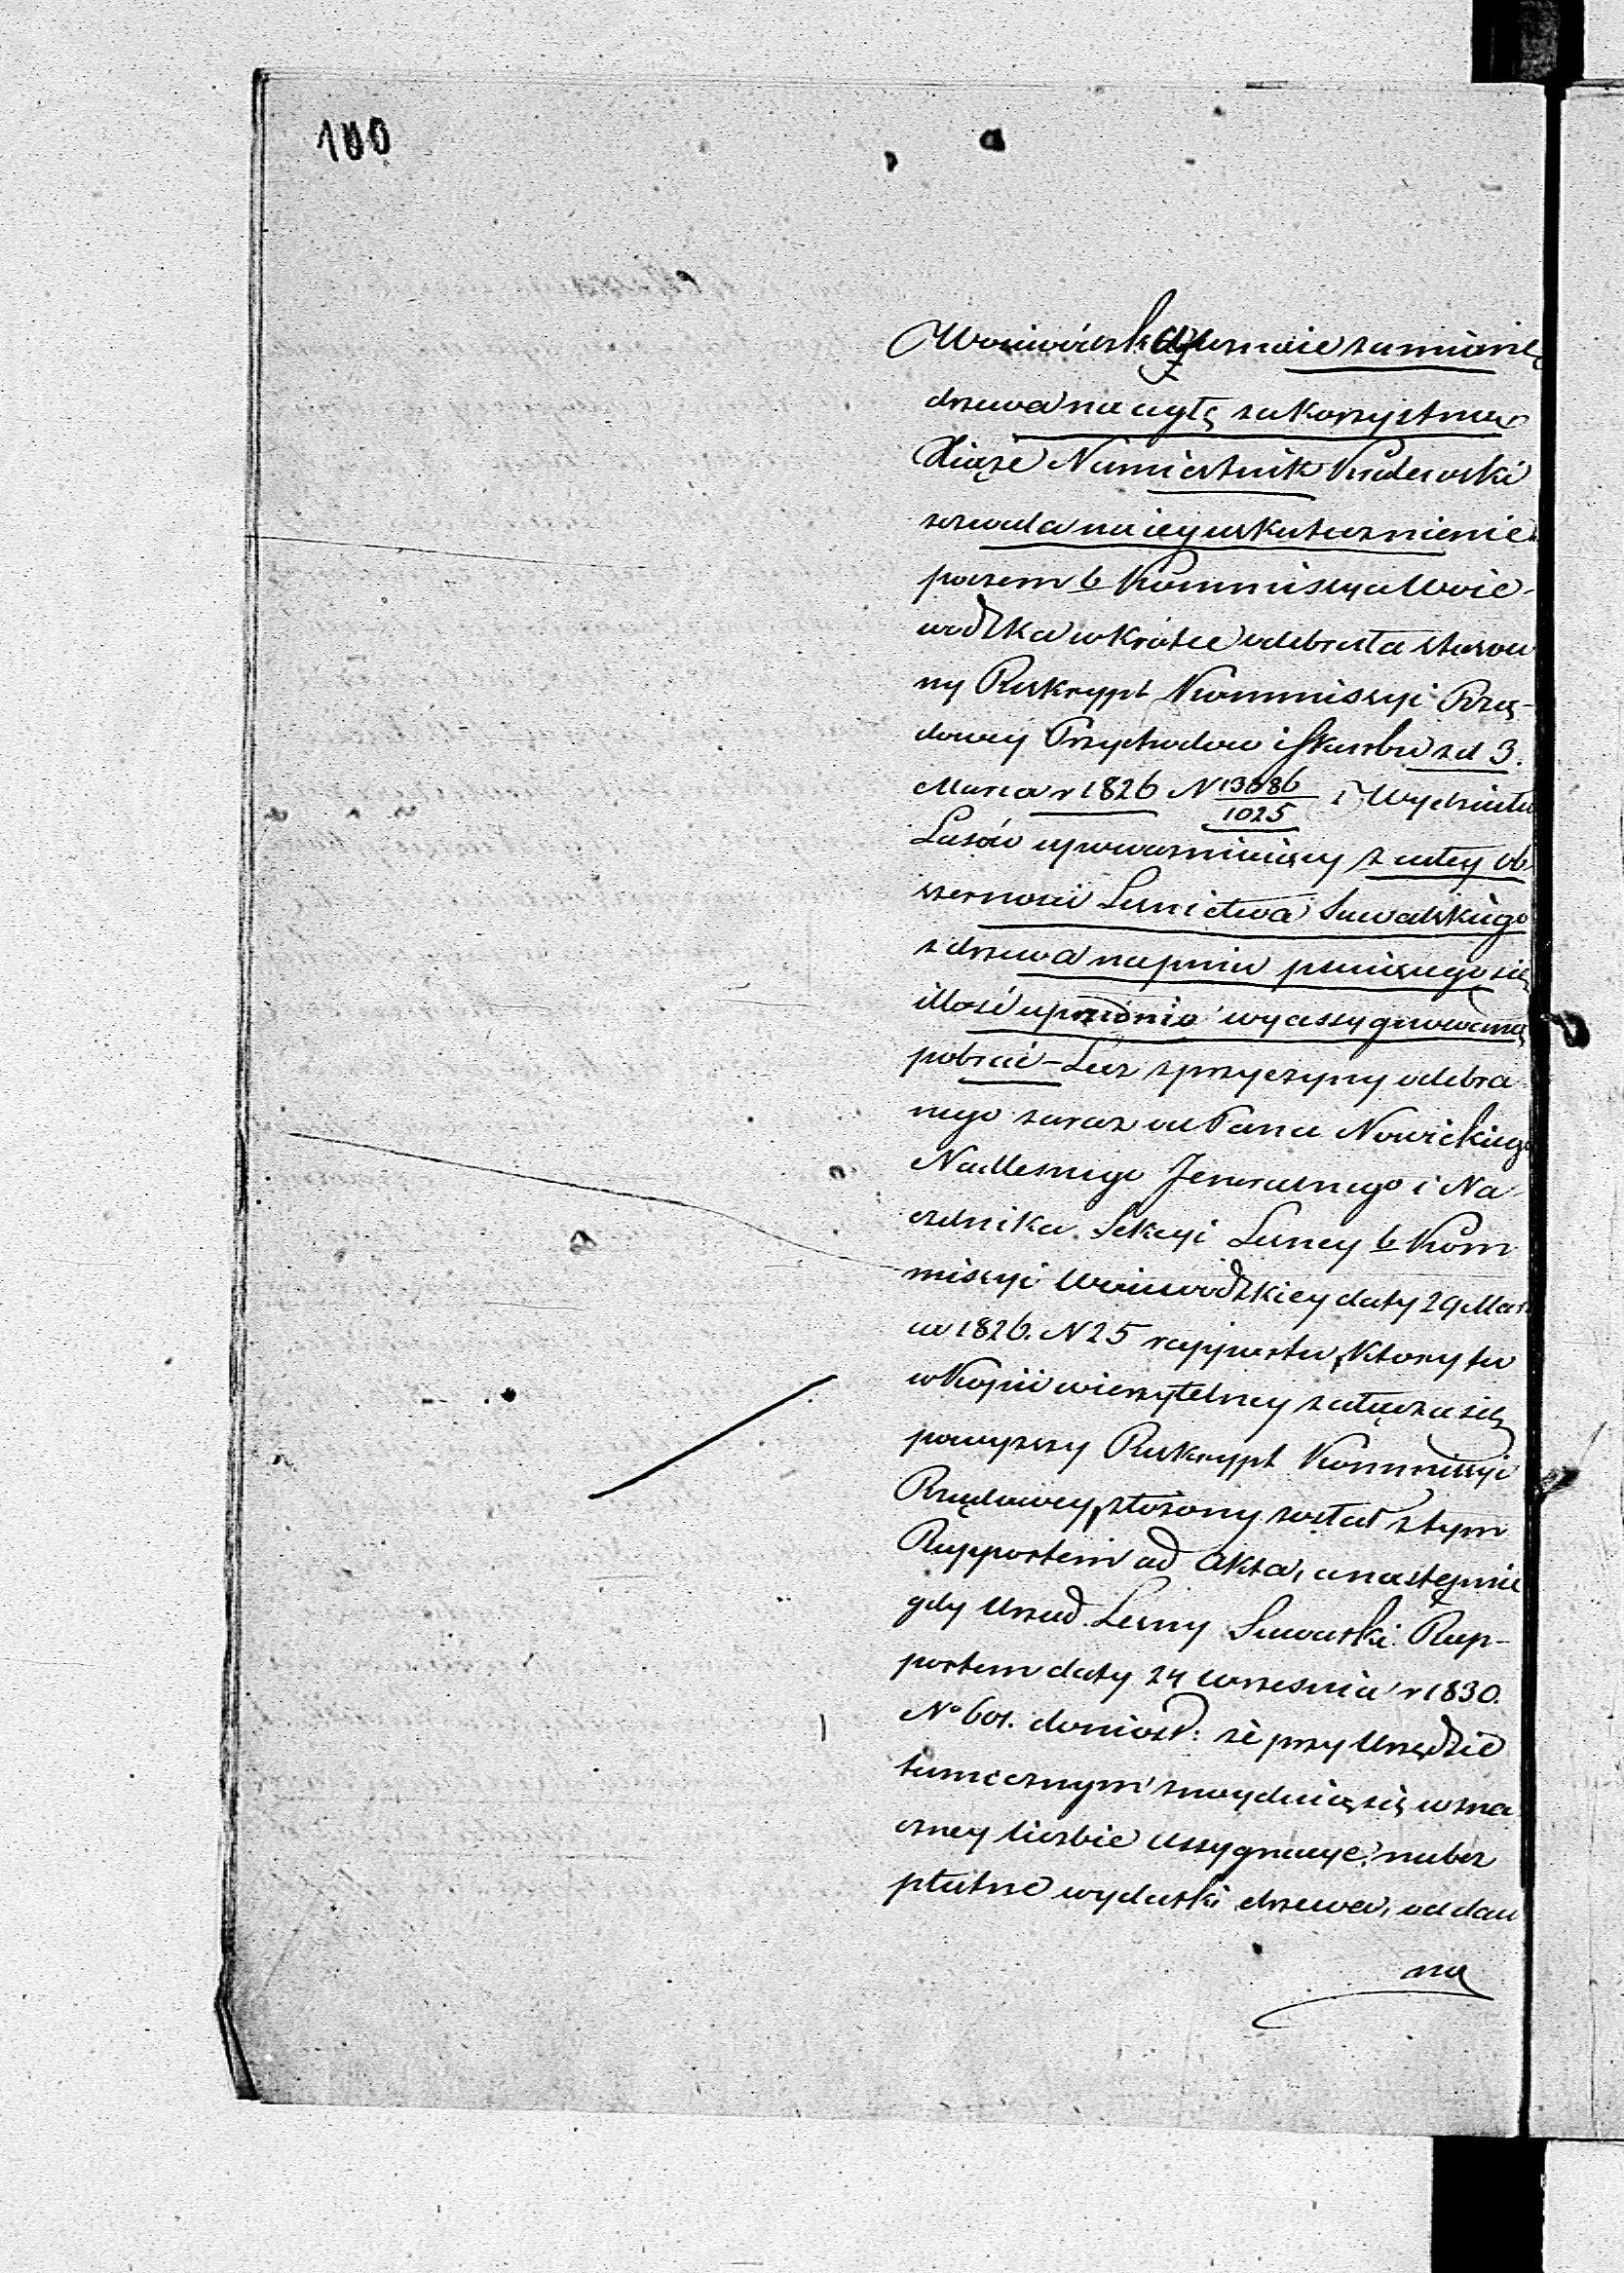 100
Woiewódzka uznaie zamianę
drzewa na cegłę za korzystną
Xiąże Namiestnik Królewski
zezwala na iey uskutecznienie
poczem b Kommissya Woie-
wodzka wkrótce odebrała stosow
ny Reskrypt Kommissyi Rzą-
dowey Przychodow i Skarbu z d 3.
Marca r 1826 N 13686/1025 z Wydziału
Lasów upoważniaiący z całey ob
szerności Lesnictwa Suwalskiego
z drzewa na pniu psuiącego się
illość uprzednio wyassygnowaną
pobrać – Lecz z przyczyny odebra
nego zaraz od Pana Nowickiego
Nadlesnego Jeneralnego i Na
czelnika Sekcyi Lesney b Kom
missyi Woiewodzkiey daty 29 Mar
ca 1826. N 25 rapportu, Ktory tu
w Kopii wierzytelney załącza się
powyzszy Reskrypt Kommissyi
Rządowey, złożony został z tym
Rapportem ad Akta, a następnie
gdy Urząd Lesny Suwalski Rap-
portem daty 24 Wrzesnia r 1830.
No 601. doniosł: że przy Urzędzie
tamecznym znayduią się w zna
czney liczbie Assygnacye na bez
płatne wydatki drzewa, od daw
na